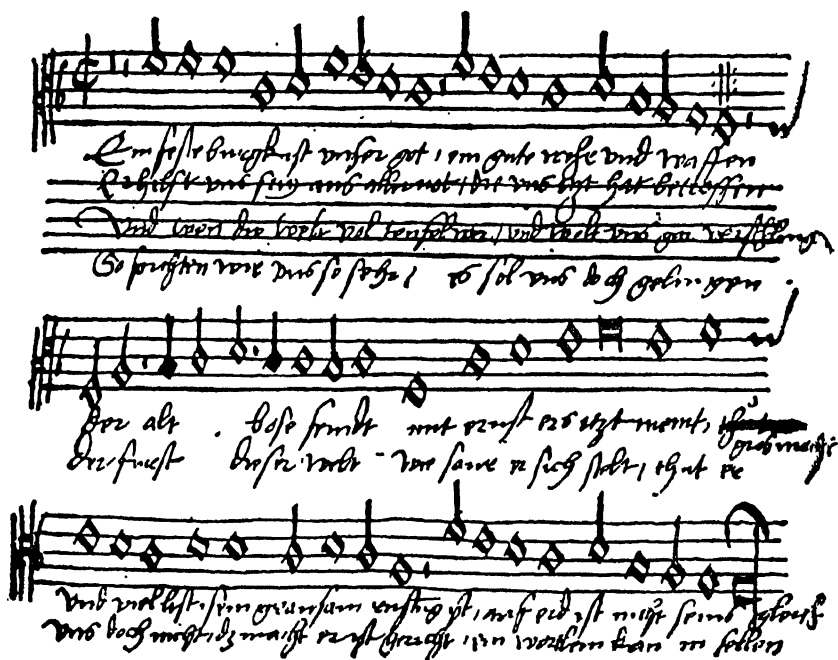 Ein feste burg ist unser got, ein gute wehr und waffen
Er hilfft uns frey aus aller not, die uns ytzt hat betroffen
Und wen die welt vol teufel wer, und wolt uns gar verschlingen
So furchten wir uns so sehr, es sol uns doch gelingen
Der alt bose feindt mit ernst ers itzt meint,
gros macht
der furst dieser welt wie saur er sich stelt, thut er
und viel list sein grausam rustung yst, auf erd ist nicht seins gleich
uns doch nicht, dz macht er ist gericht, ein wortlein kan in fellen